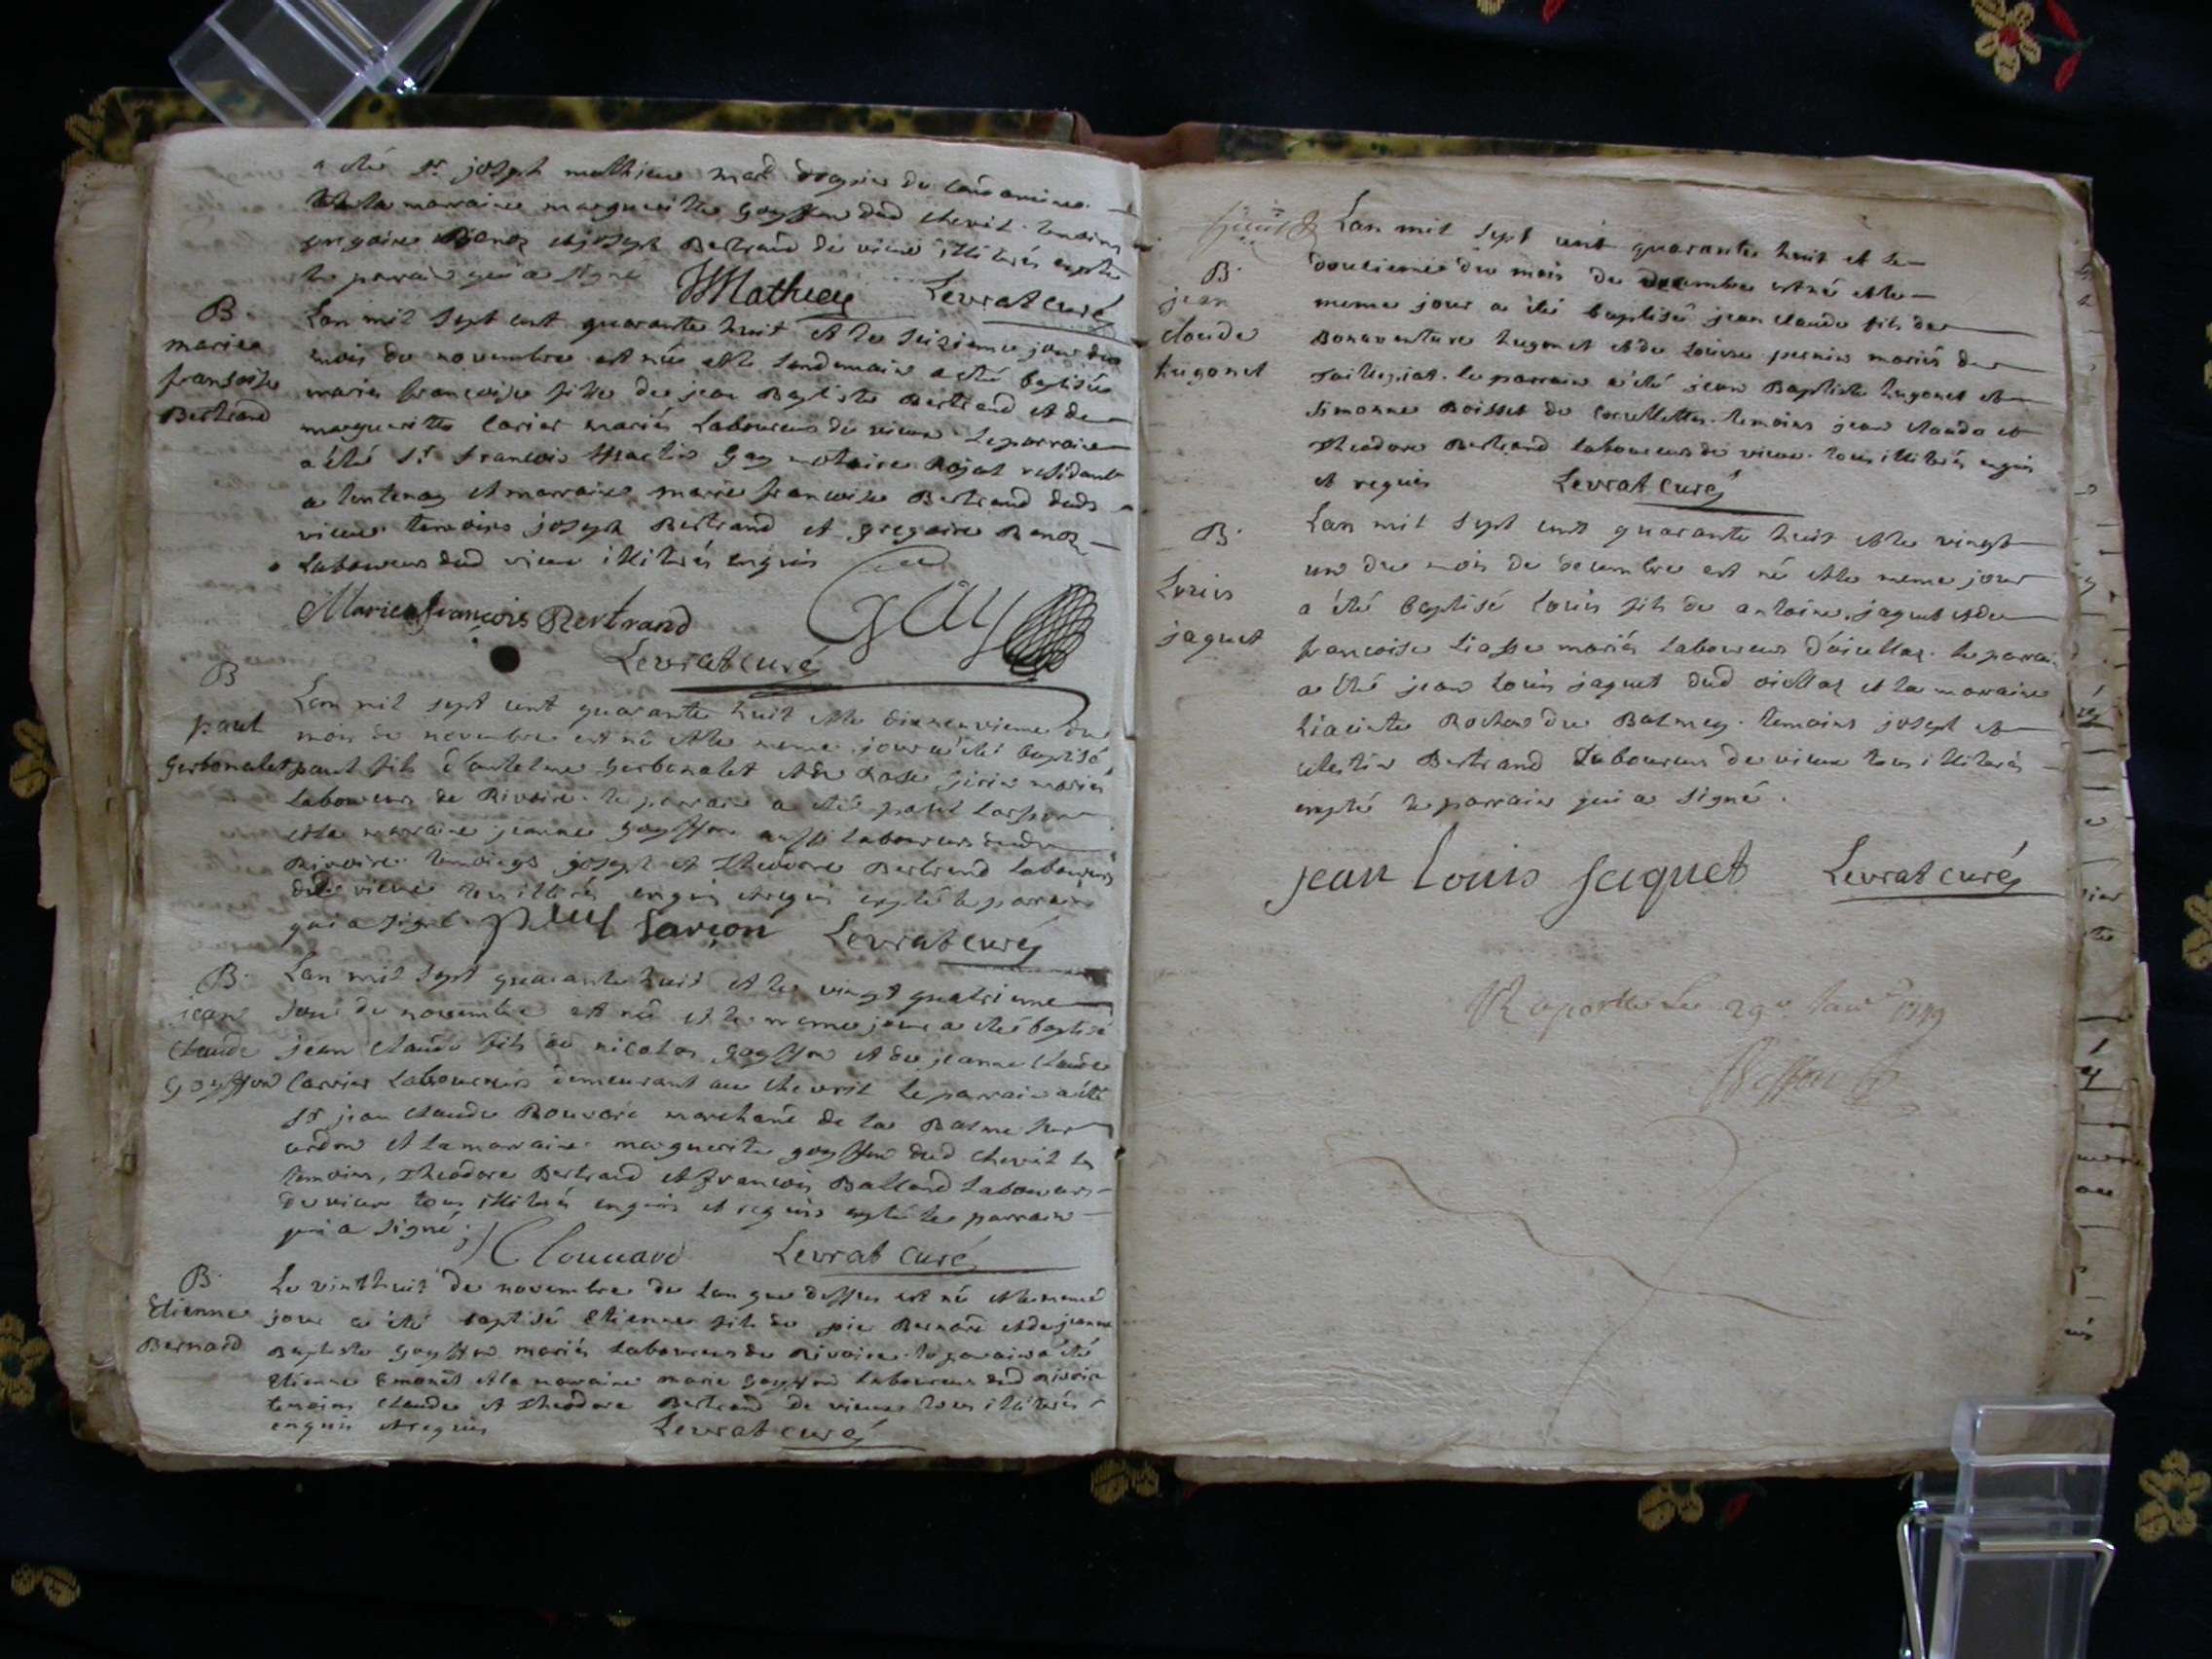 a eté Sr. joseph mathieu mard
la marraine margueritte Goyffon dud chevril. temoins
gregoire Benoz et joseph Bertrand de vieux illiterés excpté
le parrain qui a signé
JMathieu Levrat curé
B.
marie
francoise
Bertrand
Lan mil sept cent quarante huit et le seizieme jour du
mois de novembre est née et le landemain a eté baptisée
marie francoise fille de jean Baptiste Bertrand et de
margueritte carier mariés Laboureurs de vieux. Le parraine
a eté Sr. francois Gay notaire Royal residant
a et marraine marie francoise Bertrand dud
vieux temoins joseph Bertrand et gregoire Benoz
Laboureurs dud vieux illiterés enquis
Marie françois Bertrand GAY
Levrat curé
B
paul
Gerbonalet
Lan mil sept cent quarante huit et le dixneuvieme du
mois de novembre est né et le meme jour a eté baptisé
paul fils d'antelme Gerbonalet et de Rose mariés
Laboureurs de Rivoire. le parrain a eté paul Larson
et la marraine jeanne Goyffon aussi Laboureurs dud
Rivoire. temoings joseph et Theodore Bertrand Laboureurs
de vieux tous illiterés enquis et requis excpté le parrain
qui a signé. paul Larçon Levrat curé
B.
jean
claude
Goyffon
Lan mil sept quarante huit et le vingt quatrieme
jour de novembre est né et le meme jour a eté baptisé
jean claude fils de nicolas Goyffon et de jeanne claude
Carrier Laboureurs demeurant au chevril Le parrain a eté
Sr jean claude Bouvard marchand de la Balme sur
cerdon et la marraine margueritte goyffon dud chevril les
temoins, Theodore Bertrand et francois Balland Laboureurs
de vieux tous illiterés enquis et requis excpté le parrain
qui a signé;
Levrat curé
B.
Etienne
Bernard
Le vinthuit de novembre de Lan que dessus est né et le meme
jour a eté baptisé Etienne fils de pie Bernard et de jeanne
Baptiste Goyffon mariés Laboureurs de Rivoire. le parrain a eté
Etienne Emonet et la marraine marie Goyffon Laboureurs dud Rivoire
temoins claude et Theodore Bertrand de vieux tous illiterés
enquis et requis Levrat curé
B.
jean
claude
hugonet
Lan mil sept cent quarante huit et le
douzieme du mois de decembre est né et le
meme jour a eté baptisé jean claude fils de
Bonaventure hugonet et de Louise pernin mariés de
le parrain a eté jean Baptiste hugonet et
Simonne Boisset de temoins jean claude et
Theodore Bertrand laboureurs de vieux. tous illiterés enquis
et requis Levrat curé
B.
Louis
jaquet
Lan mil sept cent quarante huit et le vingt
un du mois de decembre est né et le meme jour
a eté baptisé Louis fils de antoine jaquet et de
francoise Liasse mariés Laboureurs d'oisellaz. le parrain
a eté jean Louis jaquet dud oisellaz et la marraine
hiacinte Rochon du Balmey. temoins joseph et
celestin Bertrand Laboureurs de vieux tous illiterés
excpté le parrain qui a signé.
jean Louis jaquet Levrat curé